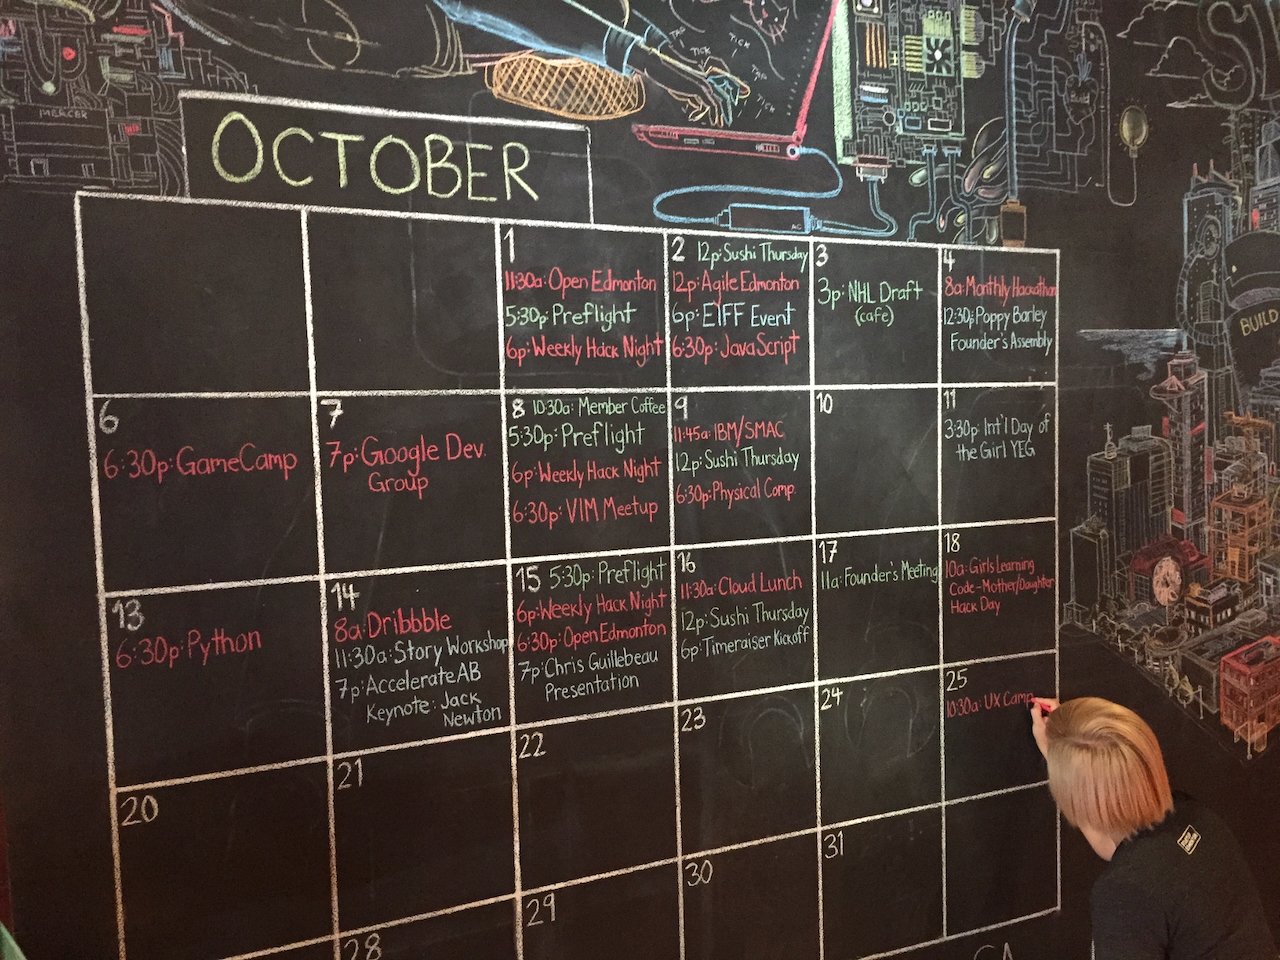 TAP
TICK
TICK
TAP
TICK
MERCER
OCTOBER
AC
BUILD
1
11:30a: Open Edmonton
5:30p: Preflight
6p: Weekly Hack Night
2 12p: Sushi Thursday
12p: Agile Edmonton
6p: EIFF Event
6:30p: JavaScript
3
3p: NHL Draft
(cafe)
4
8a: Monthly Hackathon
12:30p: Poppy Barley
Founder's Assembly
6
6:30p: GameCamp
7
7p: Google Dev.
Group
8 10:30a: Member Coffee
5:30p: Preflight
6p: Weekly Hack Night
6:30p: VIM Meetup
9
11:45a: IBM/SMAC
12p: Sushi Thursday
6:30p: Physical Comp.
10
11
3:30p: Int'l Day of
the Girl YEG
13
6:30p: Python
14
8a: Dribbble
11:30a: Story Workshop
7p: AccelerateAB
Keynote: Jack
Newton
15 5:30p: Preflight
6p: Weekly Hack Night
6:30p: Open Edmonton
7p: Chris Guillebeau
Presentation
16
11:30a: Cloud Lunch
12p: Sushi Thursday
6p: Timeraiser Kickoff
17
11a: Founder's Meeting
18
10a: Girls Learning
Code - Mother/Daughter
Hack Day
20
21
22
23
24
25
10:30a: UX Camp
28
29
30
31